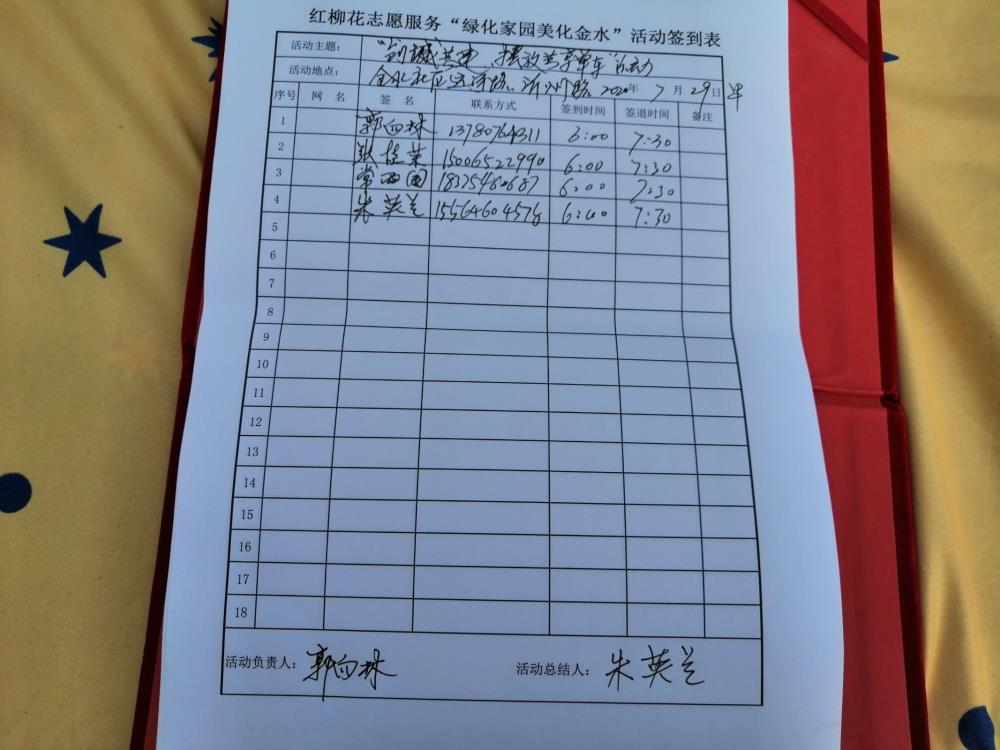 红柳花志愿服务“绿化家园美化金水”活动签到表
活动主题： “创城共建，摆放共享单车”活动
活动地点： 金水社区运河路、沂州路 2020年 7 月 29 日 早
序号 网 名 签 名 联系方式 签到时间 签退时间 备注
1 郭向林 13780764311 6:00 7:30
2 张桂荣 15006522990 6:00 7:30
3 常西国 18375482687 6:00 7:30
4 朱英兰 15564604578 6:00 7:30
5
6
7
8
9
10
11
12
13
14
15
16
17
18
活动负责人： 郭向林 活动总结人： 朱英兰